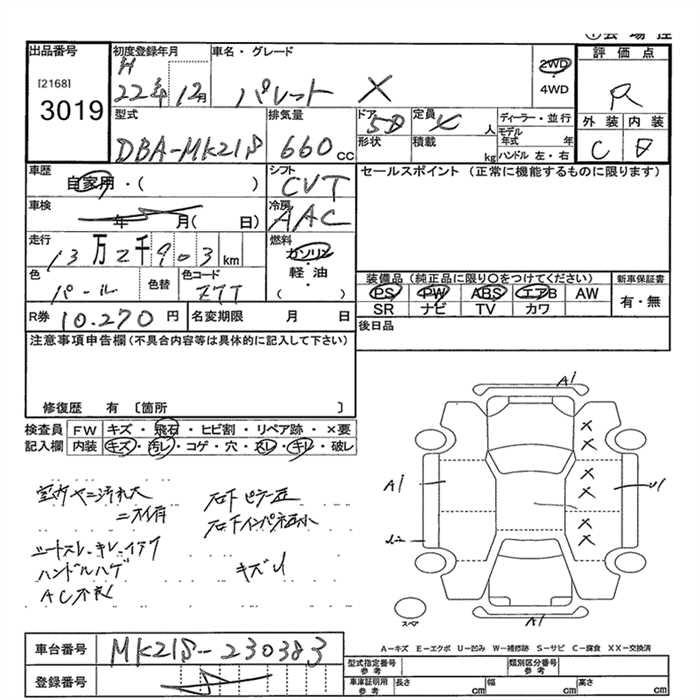 出品番号
[2168]
3019
初度登録年月
H
22年12月
車名・グレード
パレット X
2WD
・
4WD
評価点
R
外装 内装
C D
型式
DBA-MK21S
排気量
660 CC
ドア 5D
形状
定員 人
積載 kg
ディーラー・並行
モデル
年式 年
ハンドル 左・右
車歴
自家用・( )
シフト
CVT
セールスポイント (正常に機能するものに限ります)
車検
年 月( 日)
冷房
AAC
走行
13万2千903 km
燃料
ガソリン
軽油
・
( )
色
パール
色替
色コード
Z7T
装備品 (純正品に限り○をつけてください)
PS PW ABS エアB AW
SR ナビ TV カワ
新車保証書
有・無
R券 10.270 円
名変期限 月 日
後日品
注意事項申告欄(不具合内容等は具体的に記入して下さい)
修復歴 有 〔箇所 〕
検査員
記入欄
FW キズ・飛石・ヒビ割・リペア跡・×要
内装 キズ・汚レ・コゲ・穴・スレ・キレ・破レ
室内ヤニ汚れ大
ニオイ有
シートスレ・キレ・イタミ
ハンドルハゲ
AC不良
右下ピラー歪
右下インパネ歪小
キズU
A1
A1
U1
A1
スペア
A-キズ E-エクボ U-凹み W-補修跡 S-サビ C-腐食 XX-交換済
車台番号
MK21S-230383
登録番号
型式指定番号
参考
類別区分番号
参考
車庫証明用
参考
長さ cm
幅 cm
高さ cm